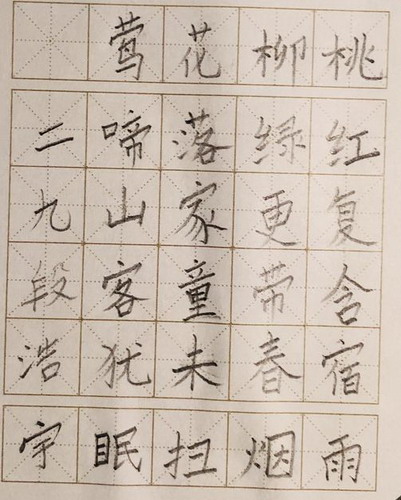 桃红复含宿雨
柳绿更带春烟
花落家童未扫
莺啼山客犹眠
二九段浩宇